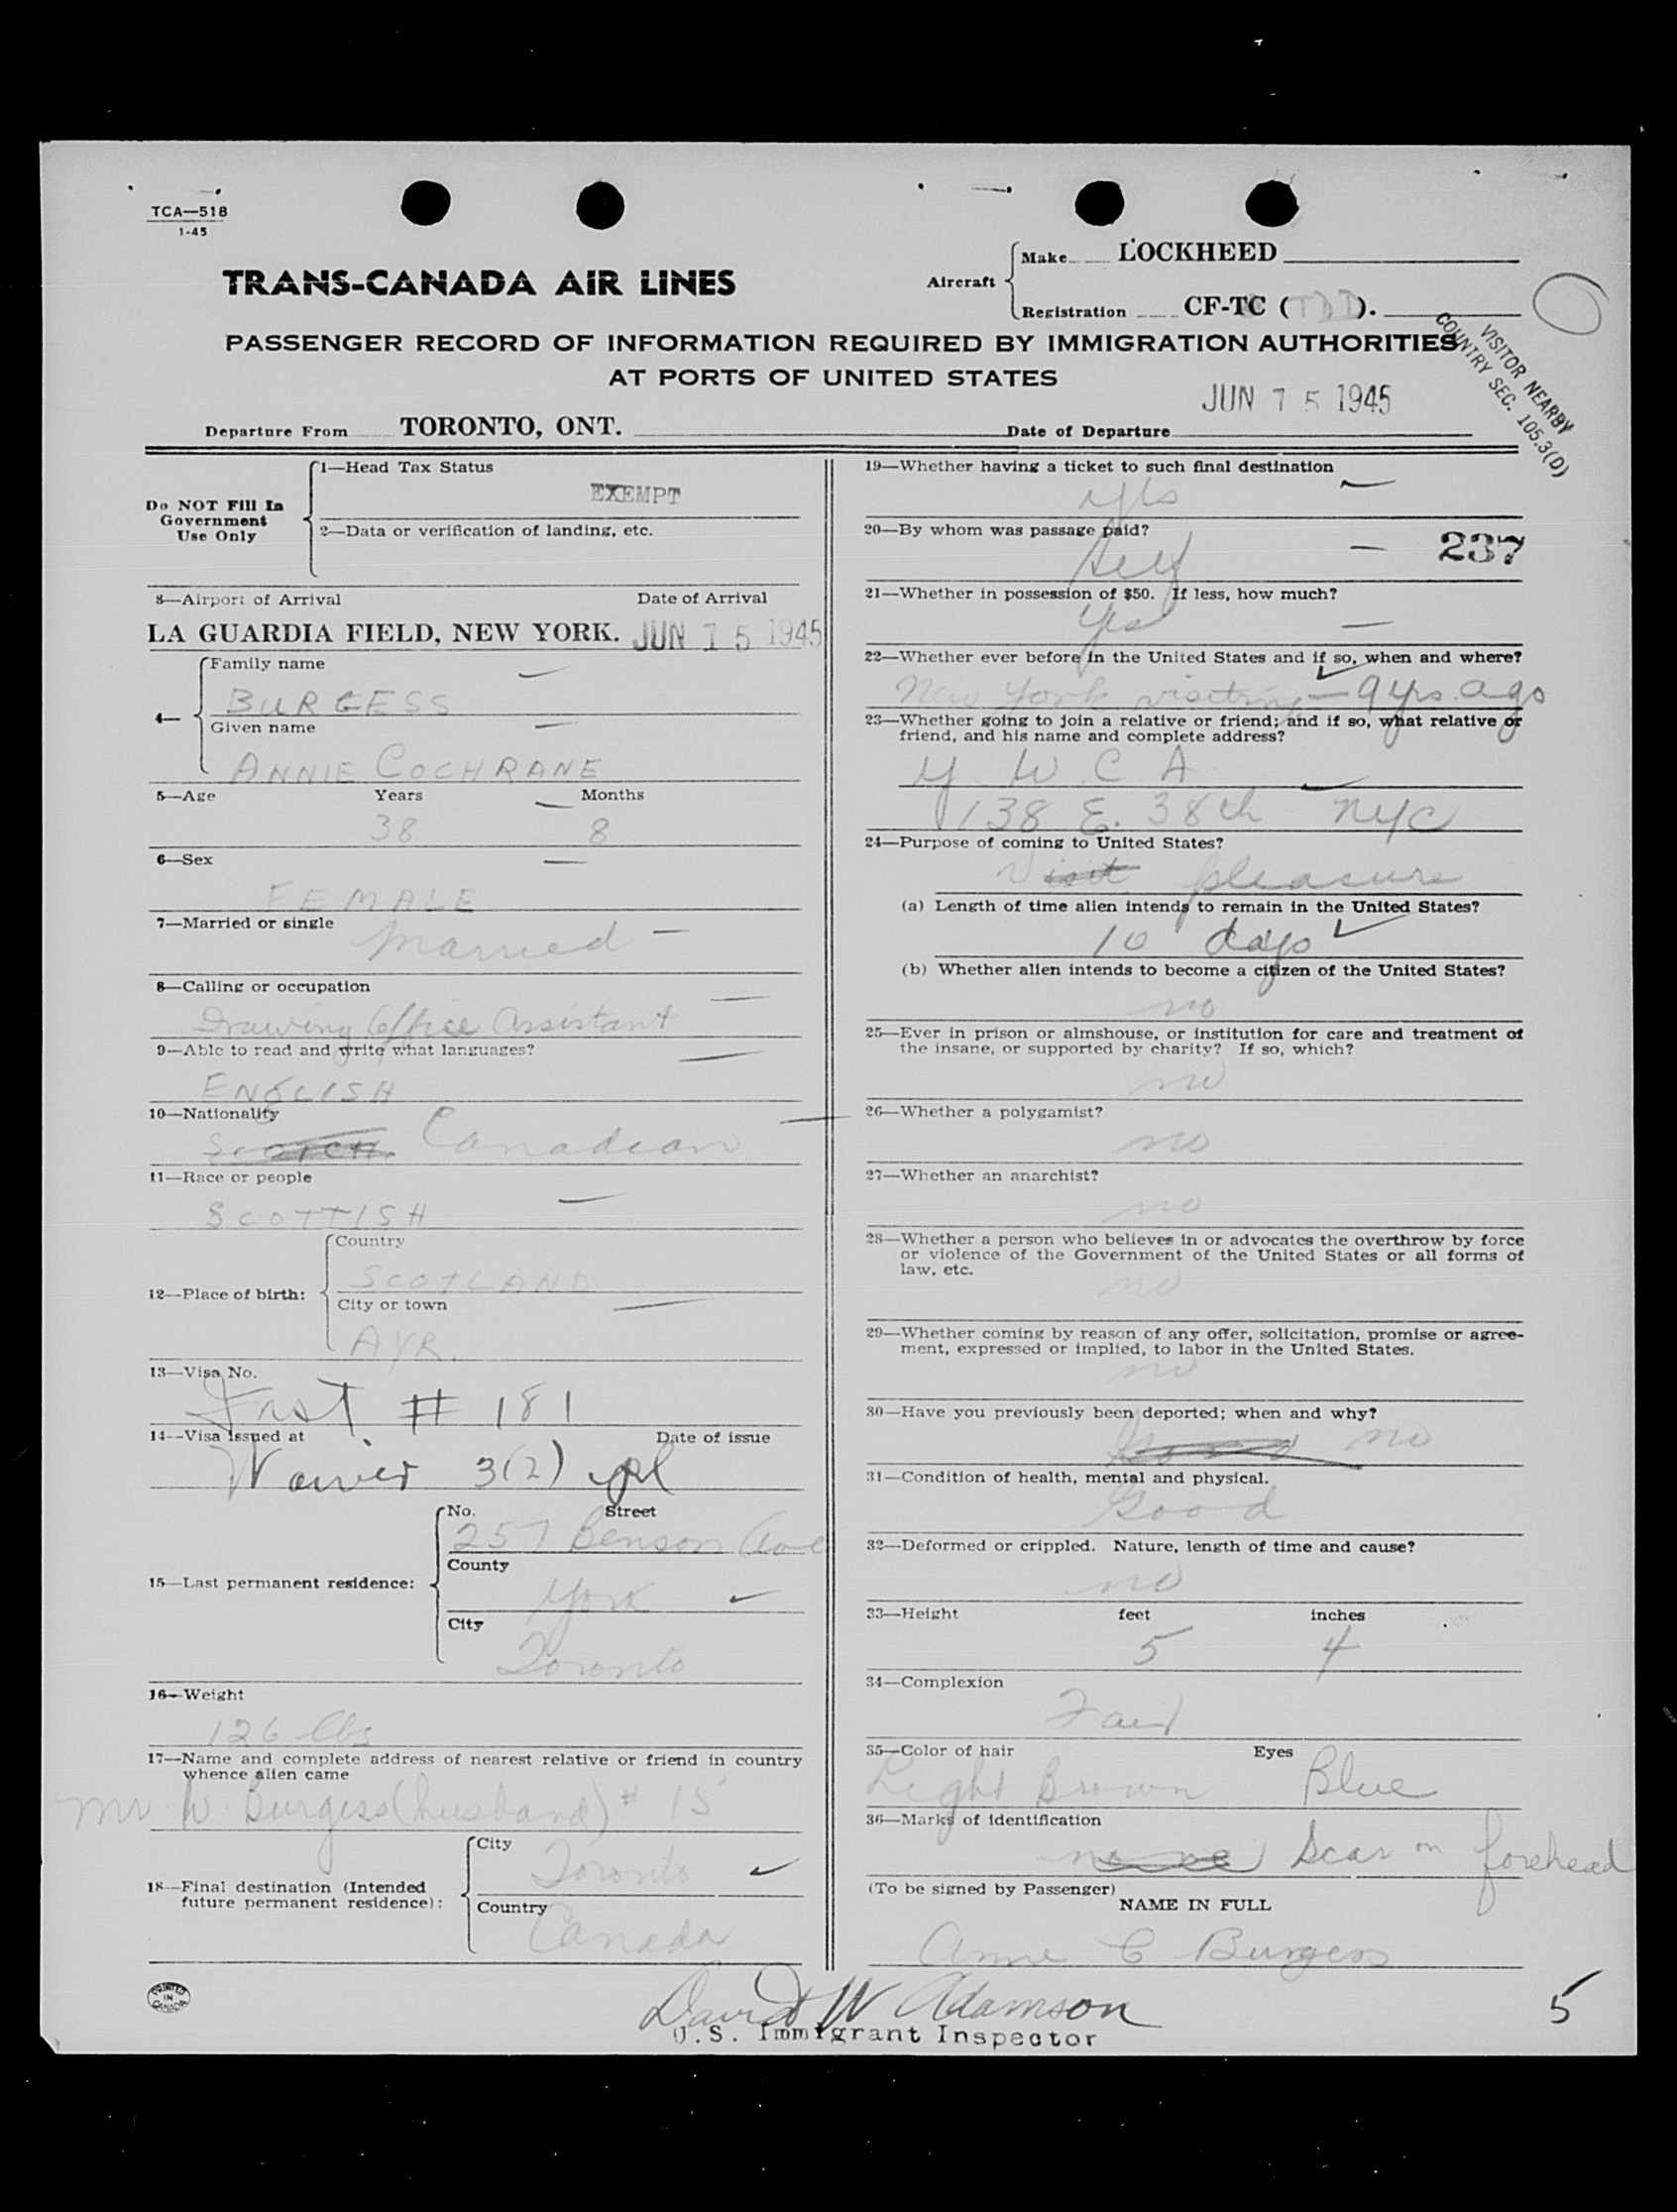 TCA—518
1-45
TRANS-CANADA AIR LINES
Aircraft
Make LOCKHEED
Registration CF-TC (TDD).
PASSENGER RECORD OF INFORMATION REQUIRED BY IMMIGRATION AUTHORITIES
AT PORTS OF UNITED STATES
VISITOR NEARBY
COUNTRY SEC. 105.3(D)
JUN 15 1945
Departure From TORONTO, ONT. Date of Departure
Do NOT Fill In
Government
Use Only
1—Head Tax Status
EXEMPT
2—Data or verification of landing, etc.
3—Airport of Arrival Date of Arrival
LA GUARDIA FIELD, NEW YORK. JUN 15 1945
4—
Family name
BURGESS
Given name
ANNIE COCHRANE
5—Age Years Months
38 8
6—Sex
FEMALE
7—Married or single
Married
8—Calling or occupation
Drawing Office Assistant
9—Able to read and write what languages?
ENGLISH
10—Nationality
SCOTCH. Canadian
11—Race or people
SCOTTISH
12—Place of birth:
Country
SCOTLAND
City or town
AYR.
13—Visa No.
# 181
14—Visa issued at Date of issue
Waiver 3(2)
15—Last permanent residence:
No. Street
257 Benson Ave
County
York
City
Toronto
16—Weight
126 lbs
17—Name and complete address of nearest relative or friend in country
whence alien came
Mr. W. Burgess (husband) # 15
18—Final destination (Intended
future permanent residence):
City
Toronto
Country
Canada
19—Whether having a ticket to such final destination
yes
20—By whom was passage paid?
Self
237
21—Whether in possession of $50. If less, how much?
Yes
22—Whether ever before in the United States and if so, when and where?
New York visiting — 9 yrs. ago
23—Whether going to join a relative or friend; and if so, what relative or
friend, and his name and complete address?
Y W C A
138 E. 38th NYC
24—Purpose of coming to United States?
Visit pleasure
(a) Length of time alien intends to remain in the United States?
10 days
(b) Whether alien intends to become a citizen of the United States?
no
25—Ever in prison or almshouse, or institution for care and treatment of
the insane, or supported by charity? If so, which?
no
26—Whether a polygamist?
no
27—Whether an anarchist?
no
28—Whether a person who believes in or advocates the overthrow by force
or violence of the Government of the United States or all forms of
law, etc.
no
29—Whether coming by reason of any offer, solicitation, promise or agree-
ment, expressed or implied, to labor in the United States.
no
30—Have you previously been deported; when and why?
Good no
31—Condition of health, mental and physical.
Good
32—Deformed or crippled. Nature, length of time and cause?
no
33—Height feet inches
5 4
34—Complexion
Fair
35—Color of hair Eyes
Light Brown Blue
36—Marks of identification
none Scar on forehead
(To be signed by Passenger)
NAME IN FULL
Anne C Burgess
PRINTED
IN
CANADA
David W Adamson
U.S. Immigrant Inspector
5